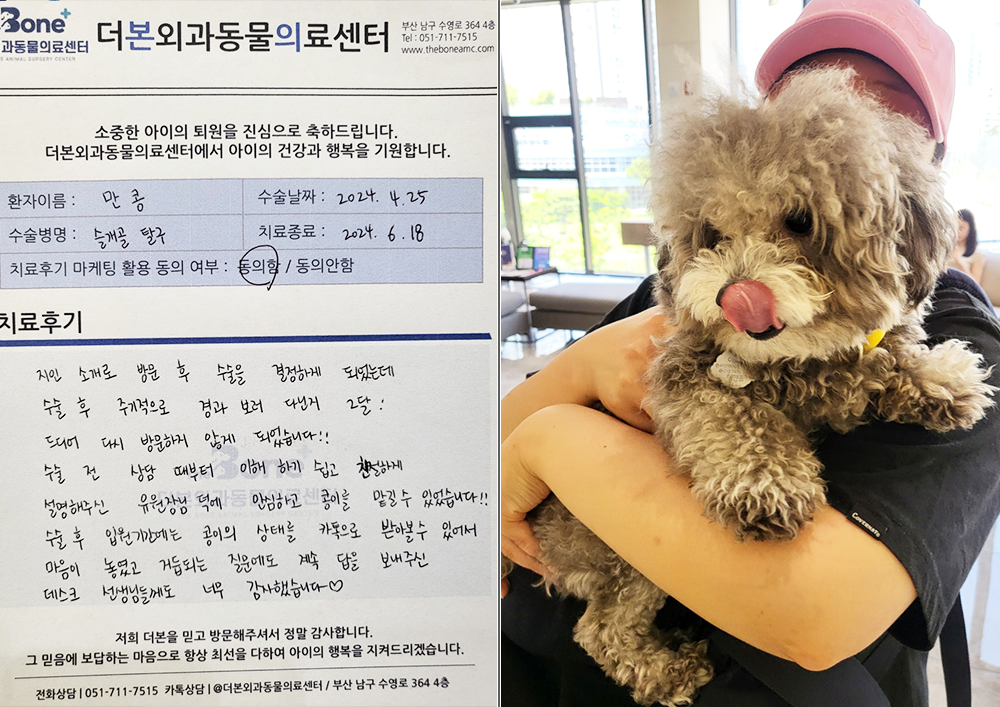 Bone+
과동물의료센터
E ANIMAL SURGERY CENTER
더본외과동물의료센터
부산 남구 수영로 364 4층
Tel : 051-711-7515
www.theboneamc.com
소중한 아이의 퇴원을 진심으로 축하드립니다.
더본외과동물의료센터에서 아이의 건강과 행복을 기원합니다.
환자이름 : 만 콩 수술날짜 : 2024. 4. 25
수술병명 : 슬개골 탈구 치료종료 : 2024. 6. 18
치료후기 마케팅 활용 동의 여부 : 동의함 / 동의안함
치료후기
지인 소개로 방문 후 수술을 결정하게 되었는데
수술 후 주기적으로 경과 보러 다닌지 2달!
드디어 다시 방문하지 않게 되었습니다!!
수술 전 상담 때부터 이해 하기 쉽고 친절하게
설명해주신 유원장님 덕에 안심하고 콩이를 맡길 수 있었습니다!!
수술 후 입원기간에는 콩이의 상태를 카톡으로 받아볼 수 있어서
마음이 놓였고 거듭되는 질문에도 계속 답을 보내주신
데스크 선생님들께도 너무 감사했습니다♡
Bone+
더본외과동물의료센터
저희 더본을 믿고 방문해주셔서 정말 감사합니다.
그 믿음에 보답하는 마음으로 항상 최선을 다하여 아이의 행복을 지켜드리겠습니다.
전화상담 | 051-711-7515 카톡상담 | @더본외과동물의료센터 / 부산 남구 수영로 364 4층